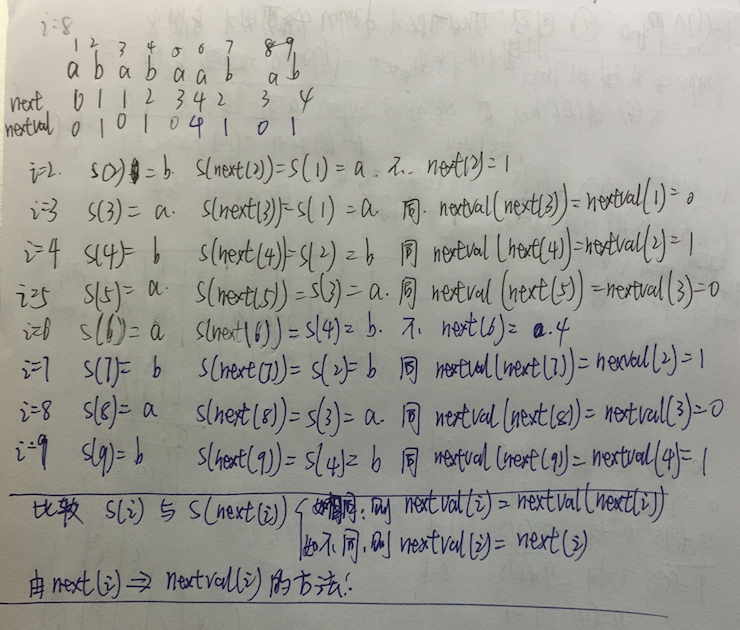 i=8
1 2 3 4 5 6 7 8 9
a b a b a a b a b
next 0 1 1 2 3 4 2 3 4
nextval 0 1 0 1 0 4 1 0 1
i=2. S(2) = b. S(next(2))=S(1)=a. 不. next(2)=1
i=3 S(3)=a. S(next(3))=S(1)=a. 同. nextval(next(3))=nextval(1)=0
i=4 S(4)= b S(next(4))=S(2)=b 同 nextval(next(4))=nextval(2)=1
i=5 S(5)=a. S(next(5))=S(3)=a. 同 nextval(next(5))=nextval(3)=0
i=6 S(6)=a S(next(6))=S(4)=b. 不. next(6)= 4
i=7 S(7)= b S(next(7))=S(2)=b 同 nextval(next(7))=nexval(2)=1
i=8 S(8)=a S(next(8))=S(3)=a. 同 nextval(next(8))=nextval(3)=0
i=9 S(9)=b S(next(9))=S(4)=b 同 nextval(next(9)=nextval(4)=1
比较 S(i) 与 S(next(i)) { 如同, 则 nextval(i)=nextval(next(i))
如不同, 则 nextval(i)=next(i)
由next(i)⇒nextval(i) 的方法: